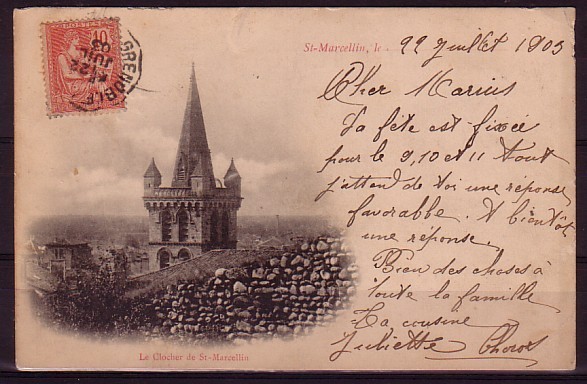 St-Marcellin, le 22 Juillet 1903
Cher Marius
La fête est fixée
pour le 9, 10 et 11 Aout
j'attend de toi une réponse
favorable. A bientôt
une réponse.
Bien des choses à
toute la famille
Ta cousine
Juliette
10
GRENOBLE
22
JUIL
03
Le Clocher de St-Marcellin